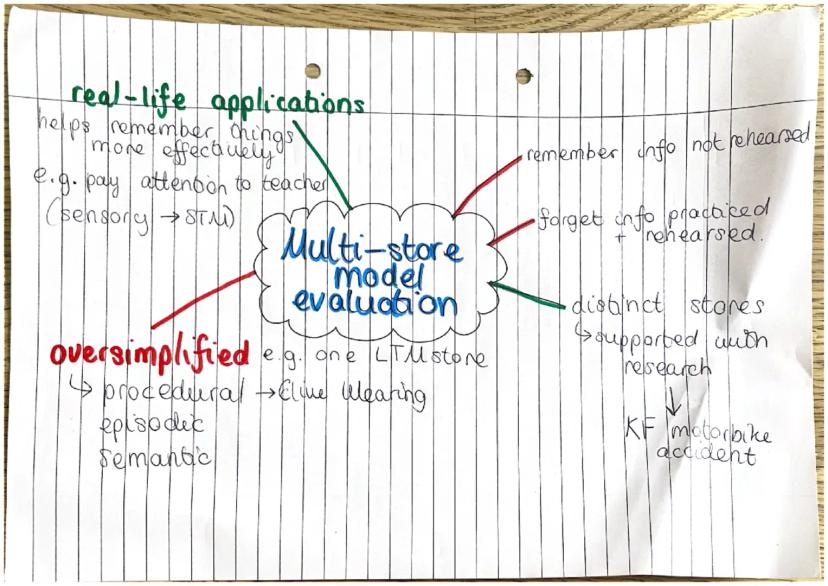 real-life applications
helps remember things
more effectively
e.g. pay attention to teacher
(sensory → STM)
Multi-store
model
evaluation
remember info not rehearsed
forget info practiced
+ rehearsed.
distinct stores
↳ supported with
research
↓
KF motorbike
accident
oversimplified e.g. one LTM store
↳ procedural → Clive Wearing
episodic
semantic